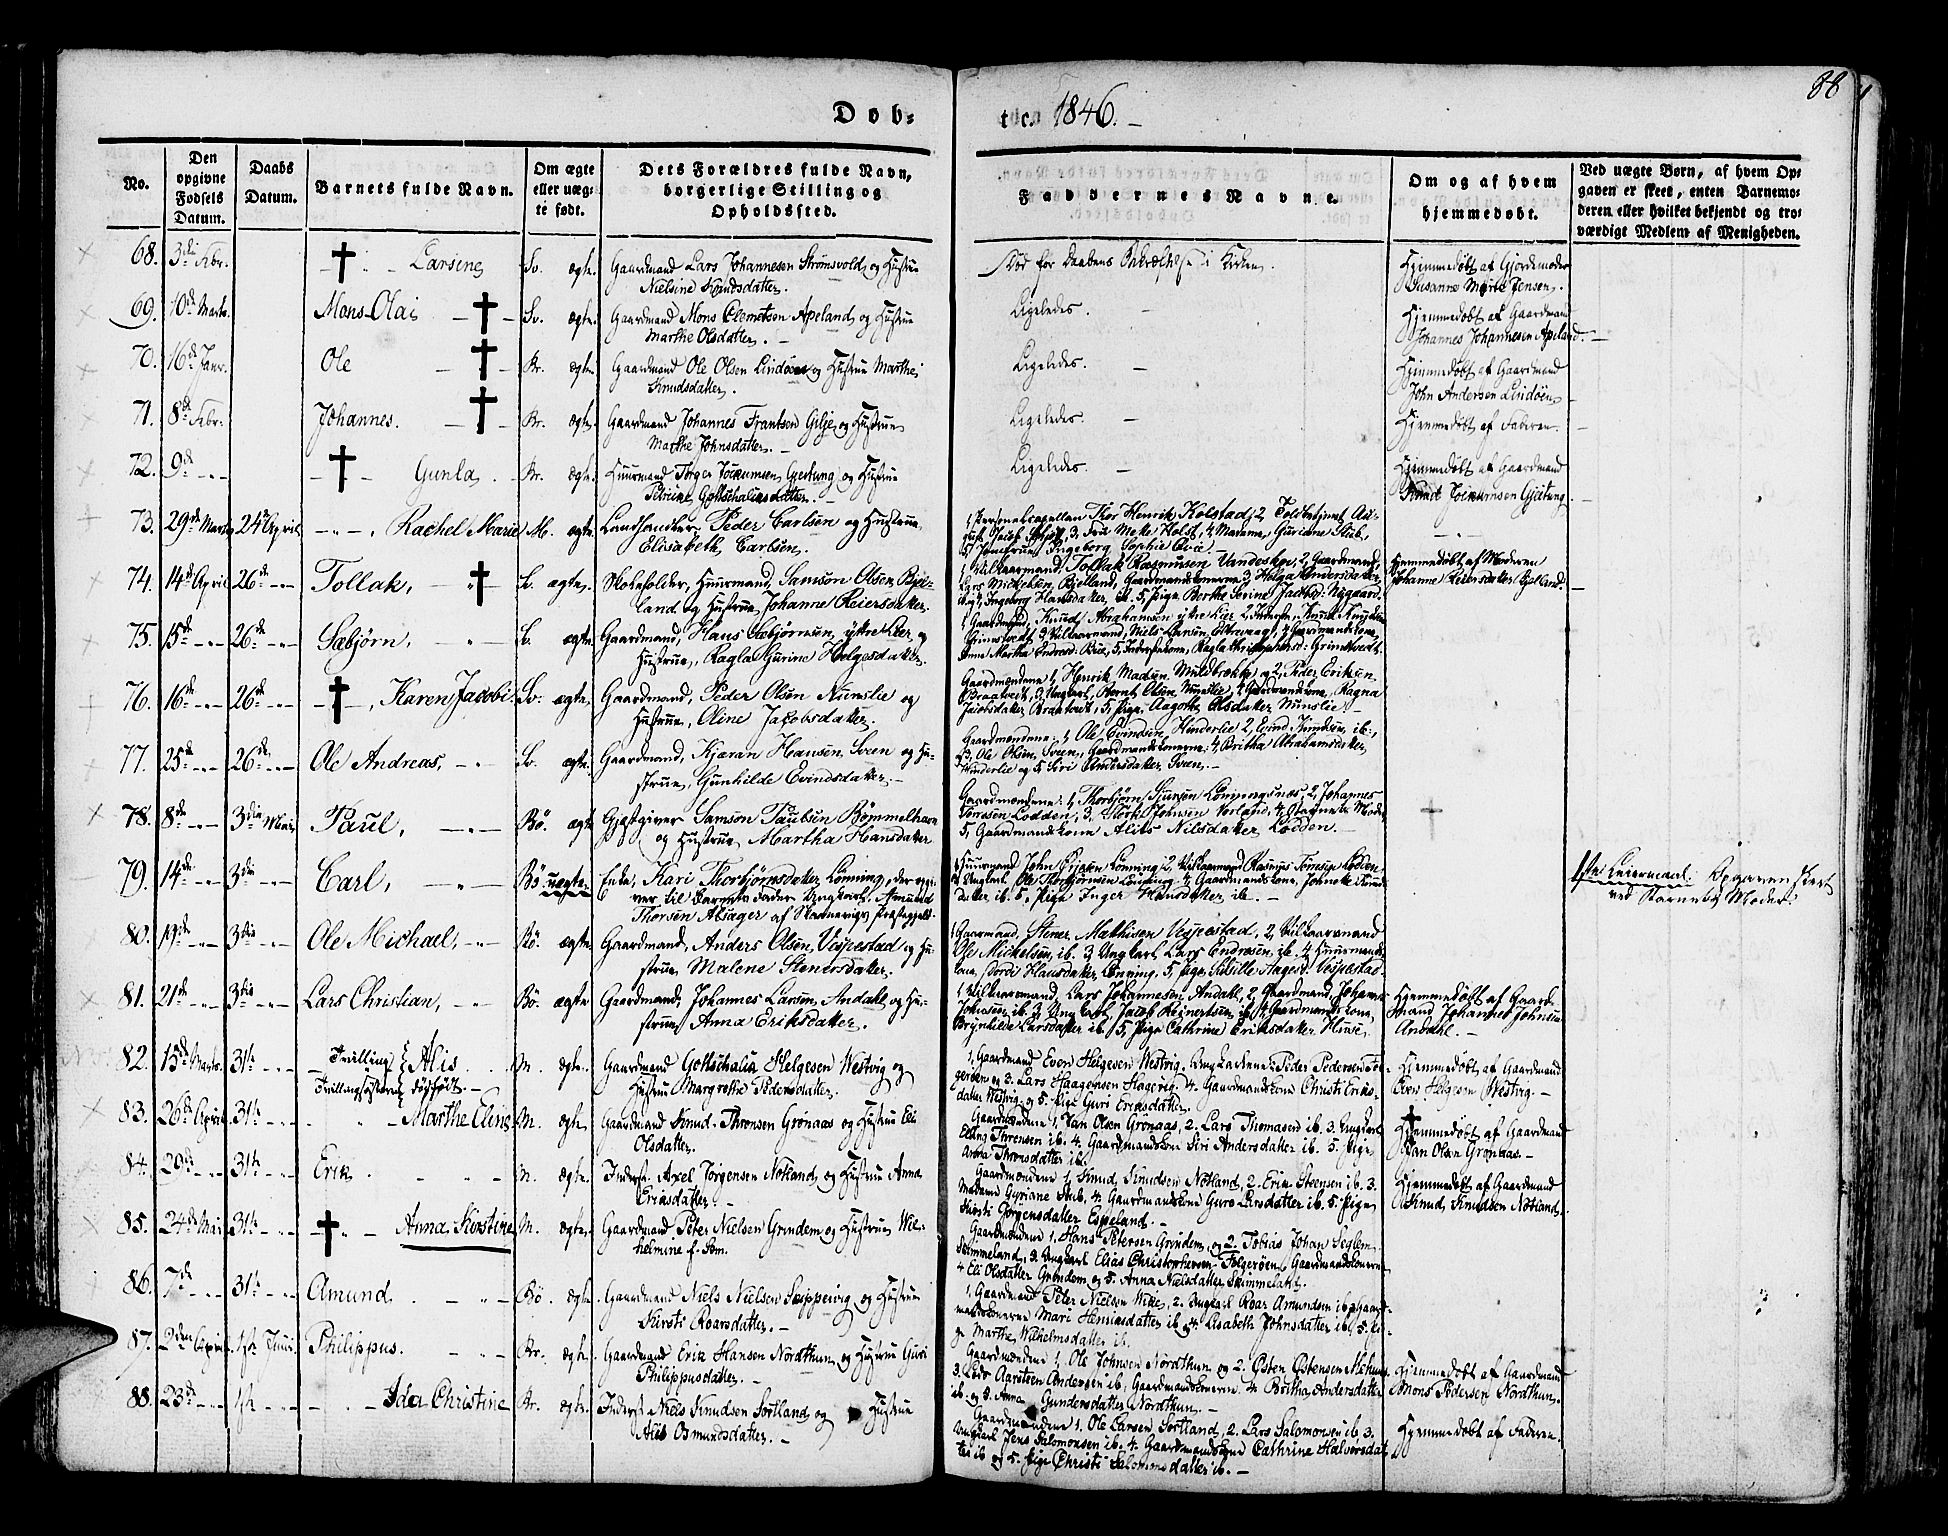 88
Døb-
te. 1846.
No.
Den
opgivne
Fødsels
Datum.
Daabs
Datum.
Barnets fulde Navn.
Om ægte
eller uæg-
te født.
Dets Forældres fulde Navn,
borgerlige Stilling og
Opholdssted.
Faddernes Navne.
Om og af hvem
hjemmedøbt.
Ved uægte Børn, af hvem Op-
gaven er skeet, enten Barnemo-
deren eller hvilket bekjendt og tro-
værdigt Medlem af Menigheden.
68. 3die Febr. Larsine Sv. ægte. Gaardmand Lars Johannesen Strømsvold og Hustrue
Nielsine Knudsdatter.
Død før Daabens Bekræftelse i Kirken.
Hjemmedøbt af Gjordemoder
Susanne Marie Jensen.
69. 10de Marts. Mons Olai Sv. ægte. Gaardmand Mons Clemetsen Apeland og Hustrue
Marthe Olsdatter.
Ligeledes.
Hjemmedøbt af Gaardmand
Johannes Johannesen Apeland.
70. 16de Janr. Ole Br. ægte. Gaardmand Ole Olsen Lindøen og Hustrue Marthe
Knudsdatter.
Ligeledes.
Hjemmedøbt af Gaardmand
John Andersen Lindøen
71. 8de Febr. Johannes. Br. ægte. Gaardmand Johannes Frantsen Gilje og Hustrue
Marthe Johnsdatter.
Ligeledes.
Hjemmedøbt af Faderen.
72. 9de Gunla Br. ægte. Huusmand Torger Gjetung og Hustrue
Gottschalksdatter.
Ligeledes.
Hjemmedøbt af Gaardmand
Knud Gjetung.
73. 29de Marts 24de April Rachel Marie M. ægte. Landhandler Peder Carlsen og Hustrue
Elisabeth Carlsen.
1, Personalcapellan Thor Henrik Kolstad, 2,
3, Fru Mette Holst, 4, Madame Guriane Stub,
5, Jomfrue Ingeborg Sophie
74. 14de April 26de Tollak, Sv. ægte, Skoleholder, Huusmand, Samson Olsen Bjel-
land og Hustrue Johanne Reiersdatter.
1, Vilkaarmand Tollak Rasmussen Vandeskog, 2, Gaardmand,
Lars Mickelsen Bjelland, Gaardmandskonerne 3, Helga Andersdatter
ib. og 4, Ingeborg Hansdatter, ib. 5, Pige Berthe Serine Nygaard.
Hjemmedøbt af Moderen
Johanne Reiersdatter Bjelland.
75. 15de 26de Sæbjørn, Sv. ægte. Gaardmand, Hans Sæbjørnsen, ytre Lier og
Hustrue, Ragla Sjurine Helgesdatter.
1, Gaardmand, Knud Abrahamsen ytre Lier 2, Knud Knudsen
Grimstvedt, 3, Vilkaarmand, Niels Larsen 4, Gaardmandskone,
76. 16de 26de Karen Jacobi Sv. ægte, Gaardmand, Peder Olsen Nunslie og
Hustrue, Oline Jacobsdatter.
Gaardmændene 1, Henrik Madsen Mildbrække, og 2, Peder Eriksen
Braatvedt, 3, Ungkarl, Bernt Olsen Nunslie, 4, Gaardmandskone, Ragna
Jacobsdatter Braatvedt, 5, Pige, Aagothe Olsdatter Nunslie.
77. 25de 26de Ole Andreas, Sv. ægte. Gaardmand, Kjæran Hansen, Sveen og Hu-
strue, Gunhilde Evindsdatter.
Gaardmændene: 1, Ole Evindsen Hinderlie 2, Evind Knudsen, ib.,
3, Ole Olsen, Sveen, Gaardmandskonerne: 4, Britha Abrahamsdatter,
Hinderlie og 5, Siri Andersdatter, Sveen.
78. 8de 3die Mai, Paul, Bø. ægte Gjæstgiver Samson Paulsen Bømmelhavn
og Hustrue Martha Hansdatter
Gaardmændene: 1, Thorbjørn Sjursen Lønningsnæs 2, Johannes
Tørresen Lodden, 3, Størk Johnsen Vorland, 4,
5, Gaardmandskone Alits Nilsdatter, Lodden.
79. 14de 3die Carl, Bø. uægte. Enke, Kari Thorbjørnsdatter Lønning, der opgi-
ver til Barnets Fader Ungkarl, Asmund
Thorsen Alsager af Skaanevigs Præstegjeld.
Huusmand John Lønning, 2, Vilkaarmand Rasmus Lodden
3, Ungkarl, Ole Thorbjørnsen Lønning, 4, Gaardmandskone, Johnette Knuds-
datter ib. 5, Pige Inger Hansdatter ib.
1ste Leiermaal. Opgaven skeet
ved Barnets Moder.
80. 19de 3die Ole Michael, Bø. ægte. Gaardmand, Anders Olsen, Vespestad og Hu-
strue, Malene Stenersdatter.
1, Gaardmand, Stener Mathisen Vespestad, 2, Vilkaarmand
Ole Mickelsen, ib. 3, Ungkarl Lars Endresen, ib. 4, Huusmands-
kone, Dorde Hansdatter, Lønning, 5, Pige, Sibille Aagesd. Vespestad.
81. 21de 3die Lars Christian, Bø. ægte. Gaardmand, Johannes Larsen, Andahl og Hu-
strue, Anna Eriksdatter.
1, Vilkaarmand, Lars Johannesen Andahl, 2, Gaardmand, Johannes
Johnsen ib. 3, Ungkarl Jacob Reinertsen ib. 4, Gaardmandskone,
Brynhilde Larsdatter ib. 5, Pige Cathrine Eriksdatter Huuse.
Hjemmedøbt af Gaard-
mand Johannes Johnsen
Andahl.
82. 15de Marts. 31te Tvilling Alis M. ægte. Gaardmand Gottschalk Helgesen Westvig og
Tvillingsøsteren dødfødt.
Hustrue Margrethe Pedersdatter.
1, Gaardmand Even Helgesen Westvig. Ungkarlene: 2. Peder Pedersen
og 3. Lars Haagensen Hagevig. 4. Gaardmandskone Christi Eriks-
datter Westvig og 5. Pige Guri Eriksdatter.
Hjemmedøbt af Gaardmand
Even Helgesen Westvig.
83. 26de April 31te Marthe Eline M. ægte, Gaardmand Knud Thronsen Grønaas og Hustrue Eli
Olsdatter.
Gaardmændene 1. Jan Olsen Grønaas, 2. Lars Thomasen ib. 3. Ungkarl
Elling Thronsen ib. 4. Gaardmandskone Siri Andersdatter ib. 5. Pige
Anna Thronsdatter ib.
Hjemmedøbt af Gaardmand
Jan Olsen Grønaas.
84. 29de 31te Erik. M. ægte. Inderst Axel Jørgensen Nøtland og Hustrue Anna
Eriksdatter.
Gaardmændene 1, Knud Knudsen Nøtland, 2. Erik Steensen ib. 3.
Madame Gyriane Stub. 4. Gaardmandskone Guro Larsdatter ib. 5. Pige
Kirsti Jørgensdatter Espeland.
Hjemmedøbt af Gaardmand
Knud Knudsen Nøtland.
85. 24de Mai 31te Anna Kirstine M. ægte. Gaardmand Peter Nielsen Grindem og Hustrue Wil-
helmine f. Bom.
Gaardmændene 1, Hans Petersen Grindem, og 2. Tobias Johan Seglem
Skimmeland, 3. Ungkarl Elias Christophersen Følgerøen, Gaardmandskonerne
4 Eli Olsdatter Grindem og 5. Anna Nielsdatter Skimmeland.
86. 7de 31te Amund. Bø. ægte. Gaardmand Niels Nielsen Skippervig og Hustrue
Kirsti Roarsdatter.
1. Gaardmand Peter Nielsen Wike, 2. Ungkarl Roar Amundsen ib. Gaard-
mandskonerne 3. Mari Henriksdatter ib. og 4. Lisabeth Johnsdatter ib. 5. Pi-
ge Marthe Wilhelmsdatter ib.
87. 2den April 1ste Juni. Philippus. Br. ægte. Gaardmand Erik Hansen Nordthun og Hustrue Guri
Philippusdatter.
Gaardmændene 1, Ole Johnsen Nordthun og 2. Østen Østensen
3. Aarstien Andersen ib., Gaardmandskonerne 4. Britha Andersdatter
ib. og 5. Anna Gundersdatter Nordthun.
Hjemmedøbt af Gaardmand
Mons Pedersen Nordthun.
88. 23de 1ste Ida Christine Br. ægte. Inderst Niels Knudsen Sørtland og Hustrue
Alis Osmundsdatter.
Gaardmændene 1. Ole Larsen Sørtland, 2. Lars Salomonsen ib. 3.
Ungkarl Jens Salomonsen ib. 4. Gaardmandskone Cathrine Halvorsdat-
ter ib og 5. Pige Christi Salomonsdatter ib.
Hjemmedøbt af Faderen.